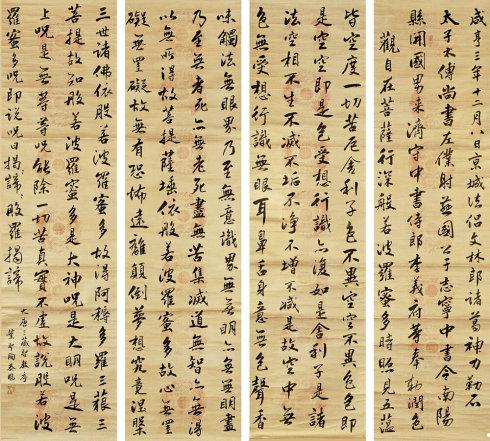 咸亨三年十二月八日城法侶文林郎葛神力勒石
太子太傅尚書左僕射燕國公于志寧中書令南陽
縣開國男來濟守中書侍郎李義府等奉勅潤色
觀自在菩薩行深般若波羅蜜多時照見五蘊
皆空度一切苦厄舍利子色不異空空不異色色即
是空空即是色受想行識亦復如是舍利子是諸
法空相不生不滅不垢不淨不增不減是故空中無
色無受想行識無眼耳鼻舌身意無色聲香
味觸法無眼界乃至無意識界無無明亦無無明盡
乃至無老死亦無老死盡無苦集滅道無智亦無得
以無所得故菩提薩埵依般若波羅蜜多故心無罣
礙無罣礙故無有恐怖遠離顛倒夢想究竟涅槃
三世諸佛依般若波羅蜜多故得阿耨多羅三藐三
菩提故知般若波羅蜜多是大神呪是大明呪是無
上呪是無等等呪能除一切苦真實不虛故說般若波
羅蜜多呪即說呪曰揭諦般羅揭諦
大唐三藏聖教序